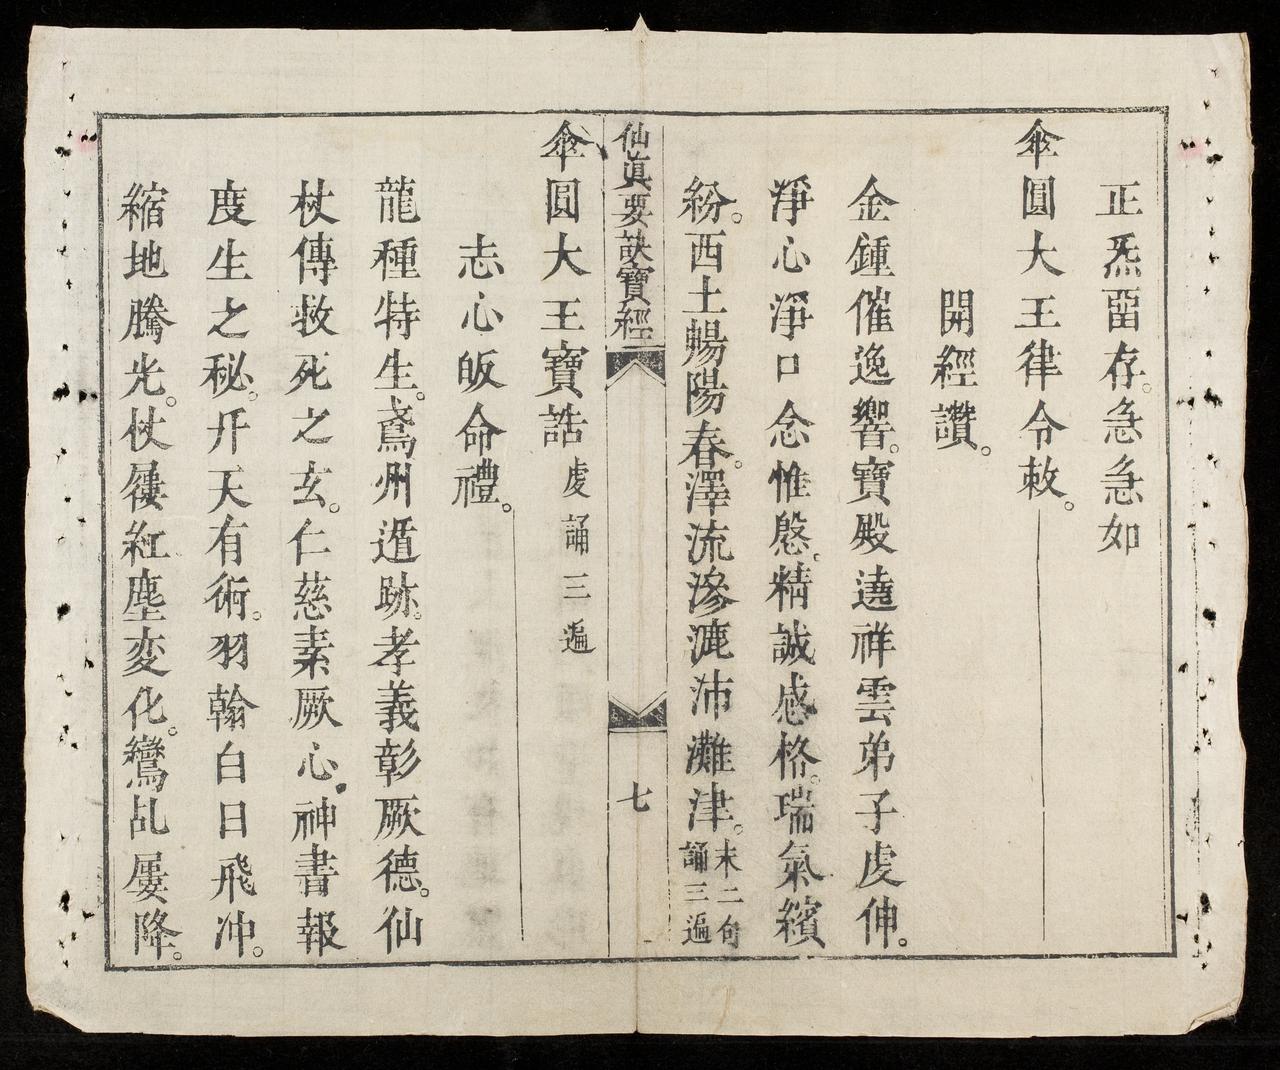 正炁畱存。急急如
傘圓大王律令敕。
開經讚。
金鍾催逸響。寶殿遶祥雲弟子虔伸。
淨心淨口念惟慇。精誠感格。瑞氣繽
紛。西土暢陽春。澤流滲漉沛灘津。末二句誦三遍
仙眞要訣寶經
七
傘圓大王寶誥虔誦三遍
志心皈命禮。
龍種特生。鳶州遁跡。孝義彰厥德。仙
杖傳救死之玄。仁慈素厥心。神書報
度生之秘。升天有術。羽翰白日飛冲。
縮地騰光。杖屨紅塵変化。鸞乩屢降。